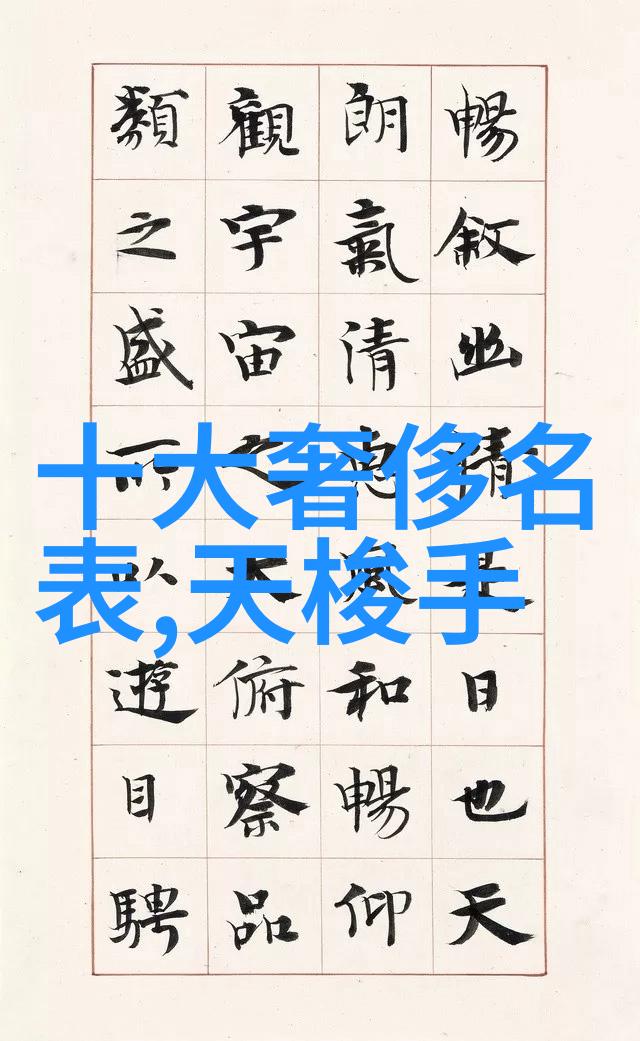 暢敘幽情是日也天
朗氣清惠風和暢仰
觀宇宙之大俯察品
類之盛所以遊目騁
十大奢侈名
表,天梭手